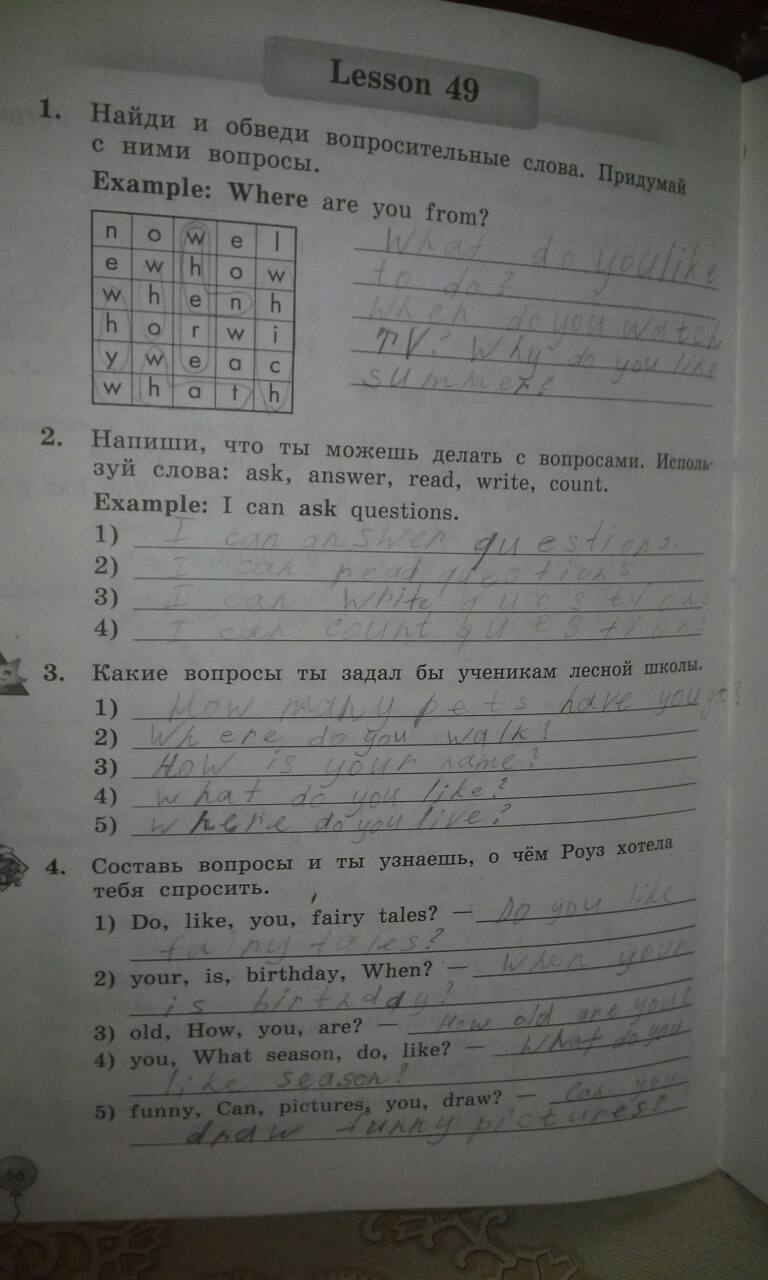 Lesson 49
1. Найди и обведи вопросительные слова. Придумай
с ними вопросы.
Example: Where are you from?
n o w e l
e w h o w
w h e n h
h o r w i
y w e a c
w h a t h
What do you like
to do?
When do you watch
TV? Why do you like
summer?
2. Напиши, что ты можешь делать с вопросами. Исполь-
зуй слова: ask, answer, read, write, count.
Example: I can ask questions.
1) I can answer questions.
2) I can read questions
3) I can write questions
4) I can count questions
3. Какие вопросы ты задал бы ученикам лесной школы.
1) How many pets have you got?
2) Where do you walk?
3) How is your name?
4) what do you like?
5) where do you live?
4. Составь вопросы и ты узнаешь, о чём Роуз хотела
тебя спросить.
1) Do, like, you, fairy tales? — Do you like
fairy tales?
2) your, is, birthday, When? — When your
is birthday?
3) old, How, you, are? — How old are you?
4) you, What season, do, like? — What do you
like season?
5) funny, Can, pictures, you, draw? — Can you
draw funny pictures?
56